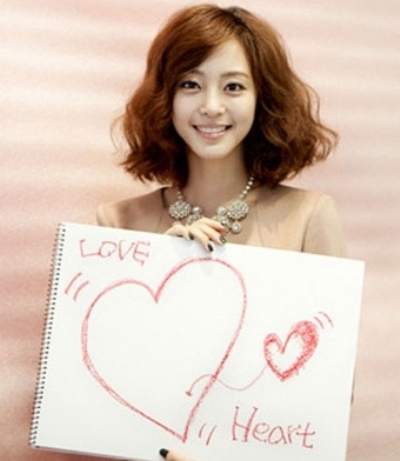 LOVE
Heart